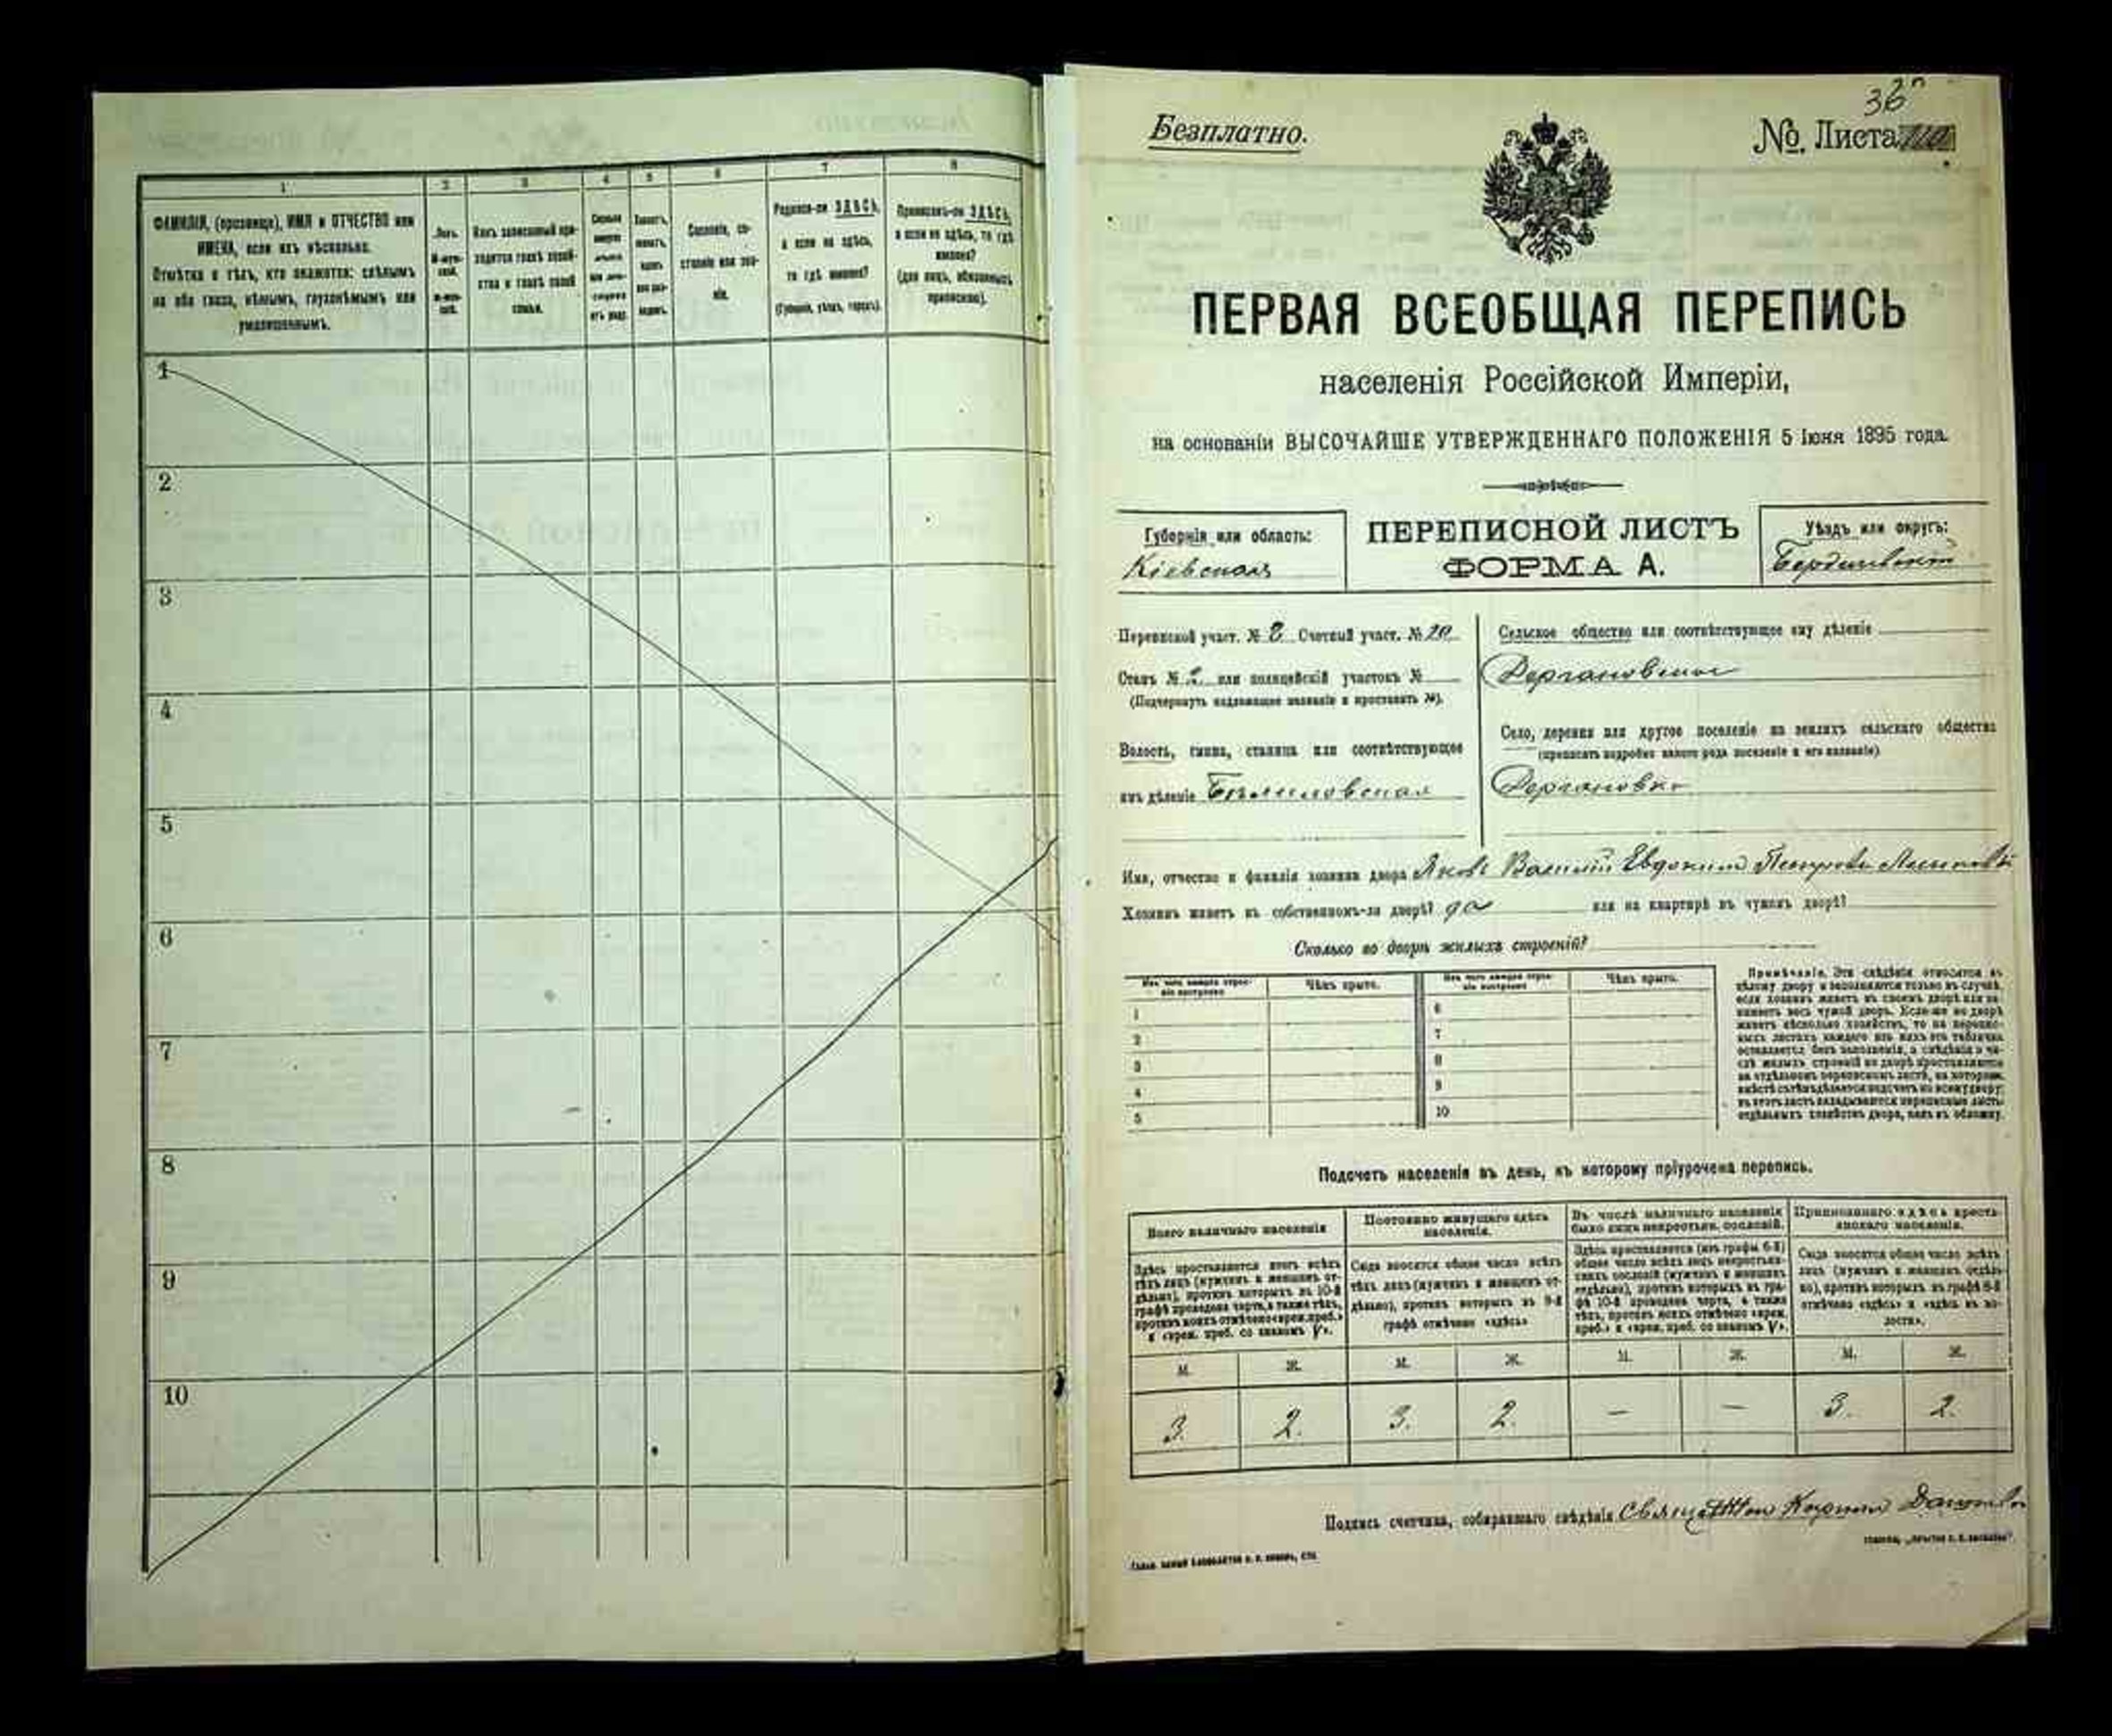 1
2
3
4
5
6
7
8
ФАМИЛІЯ, (прозвище), ИМЯ и ОТЧЕСТВО или
ИМЕНА, если ихъ нѣсколько.
Отмѣтка о тѣхъ, кто окажется: слѣпымъ
на оба глаза, нѣмымъ, глухонѣмымъ или
умалишеннымъ.
Полъ.
Какъ записанный при-
ходится главѣ хозяй-
ства и главѣ своей
семьи.
Сословіе, со-
стояніе или зва-
ніе.
Родился-ли ЗДѢСЬ,
а если не здѣсь,
то гдѣ именно?
(Губернія, уѣздъ, городъ).
Приписанъ-ли ЗДѢСЬ,
а если не здѣсь, то гдѣ
именно?
(для лицъ, обязанныхъ
припискою).
1
2
3
4
5
6
7
8
9
10
36
Безплатно.
№ Листа
ПЕРВАЯ ВСЕОБЩАЯ ПЕРЕПИСЬ
населенія Россійской Имперіи,
на основаніи ВЫСОЧАЙШЕ УТВЕРЖДЕННАГО ПОЛОЖЕНІЯ 5 Іюня 1895 года.
Губернія или область:
Кіевская
ПЕРЕПИСНОЙ ЛИСТЪ
ФОРМА А.
Уѣздъ или округъ:
Переписной участ. № 2 Счетный участ. № 20
Станъ № 2 или полицейскій участокъ №
(Подчеркнуть надлежащее названіе и проставить №).
Волость, гмина, станица или соотвѣтствующее
имъ дѣленіе
Сельское общество или соотвѣтствующее ему дѣленіе
Село, деревня или другое поселеніе на земляхъ сельскаго общества
(прописать подробно какого рода поселеніе и его названіе)
Имя, отчество и фамилія хозяина двора Яковъ Василій Евдокимъ
Хозяинъ живетъ въ собственномъ-ли дворѣ? да или на квартирѣ въ чужомъ дворѣ?
Сколько во дворѣ жилыхъ строеній?
Изъ чего каждое строе-
ніе построено
Чѣмъ крыто.
Изъ чего каждое строе-
ніе построено
Чѣмъ крыто.
1
2
3
4
5
6
7
8
9
10
Примѣчаніе. Эти свѣдѣнія относятся къ
цѣлому двору и заполняются только въ случаѣ,
если хозяинъ живетъ въ своемъ дворѣ или за-
нимаетъ весь чужой дворъ. Если-же во дворѣ
живетъ нѣсколько хозяйствъ, то на перепис-
ныхъ листахъ каждаго изъ нихъ эта табличка
оставляется безъ заполненія, а свѣдѣнія о чи-
слѣ жилыхъ строеній во дворѣ проставляются
на отдѣльномъ переписномъ листѣ, на которомъ
вмѣстѣ съ тѣмъ дѣлается подсчетъ по всему двору;
въ этотъ листъ вкладываются переписные листы
отдѣльныхъ хозяйствъ двора, какъ въ обложку.
Подсчетъ населенія въ день, къ которому пріурочена перепись.
Всего наличнаго населенія
Постоянно живущаго здѣсь
населенія.
Въ числѣ наличнаго населенія
было лицъ некрестьян. сословій.
Приписаннаго здѣсь кресть-
янскаго населенія.
Здѣсь проставляется итогъ всѣхъ
тѣхъ лицъ (мужчинъ и женщинъ от-
дѣльно), противъ которыхъ въ 10-й
графѣ проведена черта, а также тѣхъ,
противъ коихъ отмѣчено «врем. преб.»
и «врем. преб. со знакомъ V».
Сюда вносится общее число всѣхъ
тѣхъ лицъ (мужчинъ и женщинъ от-
дѣльно), противъ которыхъ въ 9-й
графѣ отмѣчено «здѣсь»
Здѣсь проставляется (изъ графы 6-й)
общее число всѣхъ лицъ некрестьян-
скихъ сословій (мужчинъ и женщинъ
отдѣльно), противъ которыхъ въ гра-
фѣ 10-й проведена черта, а также
тѣхъ, противъ коихъ отмѣчено «врем.
преб.» и «врем. преб. со знакомъ V».
Сюда вносится общее число всѣхъ
лицъ (мужчинъ и женщинъ отдѣль-
но), противъ которыхъ въ графѣ 8-й
отмѣчено «здѣсь» и «здѣсь въ во-
лости».
М. Ж. М. Ж. М. Ж. М. Ж.
3. 2. 3. 2. — — 3. 2.
Подпись счетчика, собиравшаго свѣдѣнія